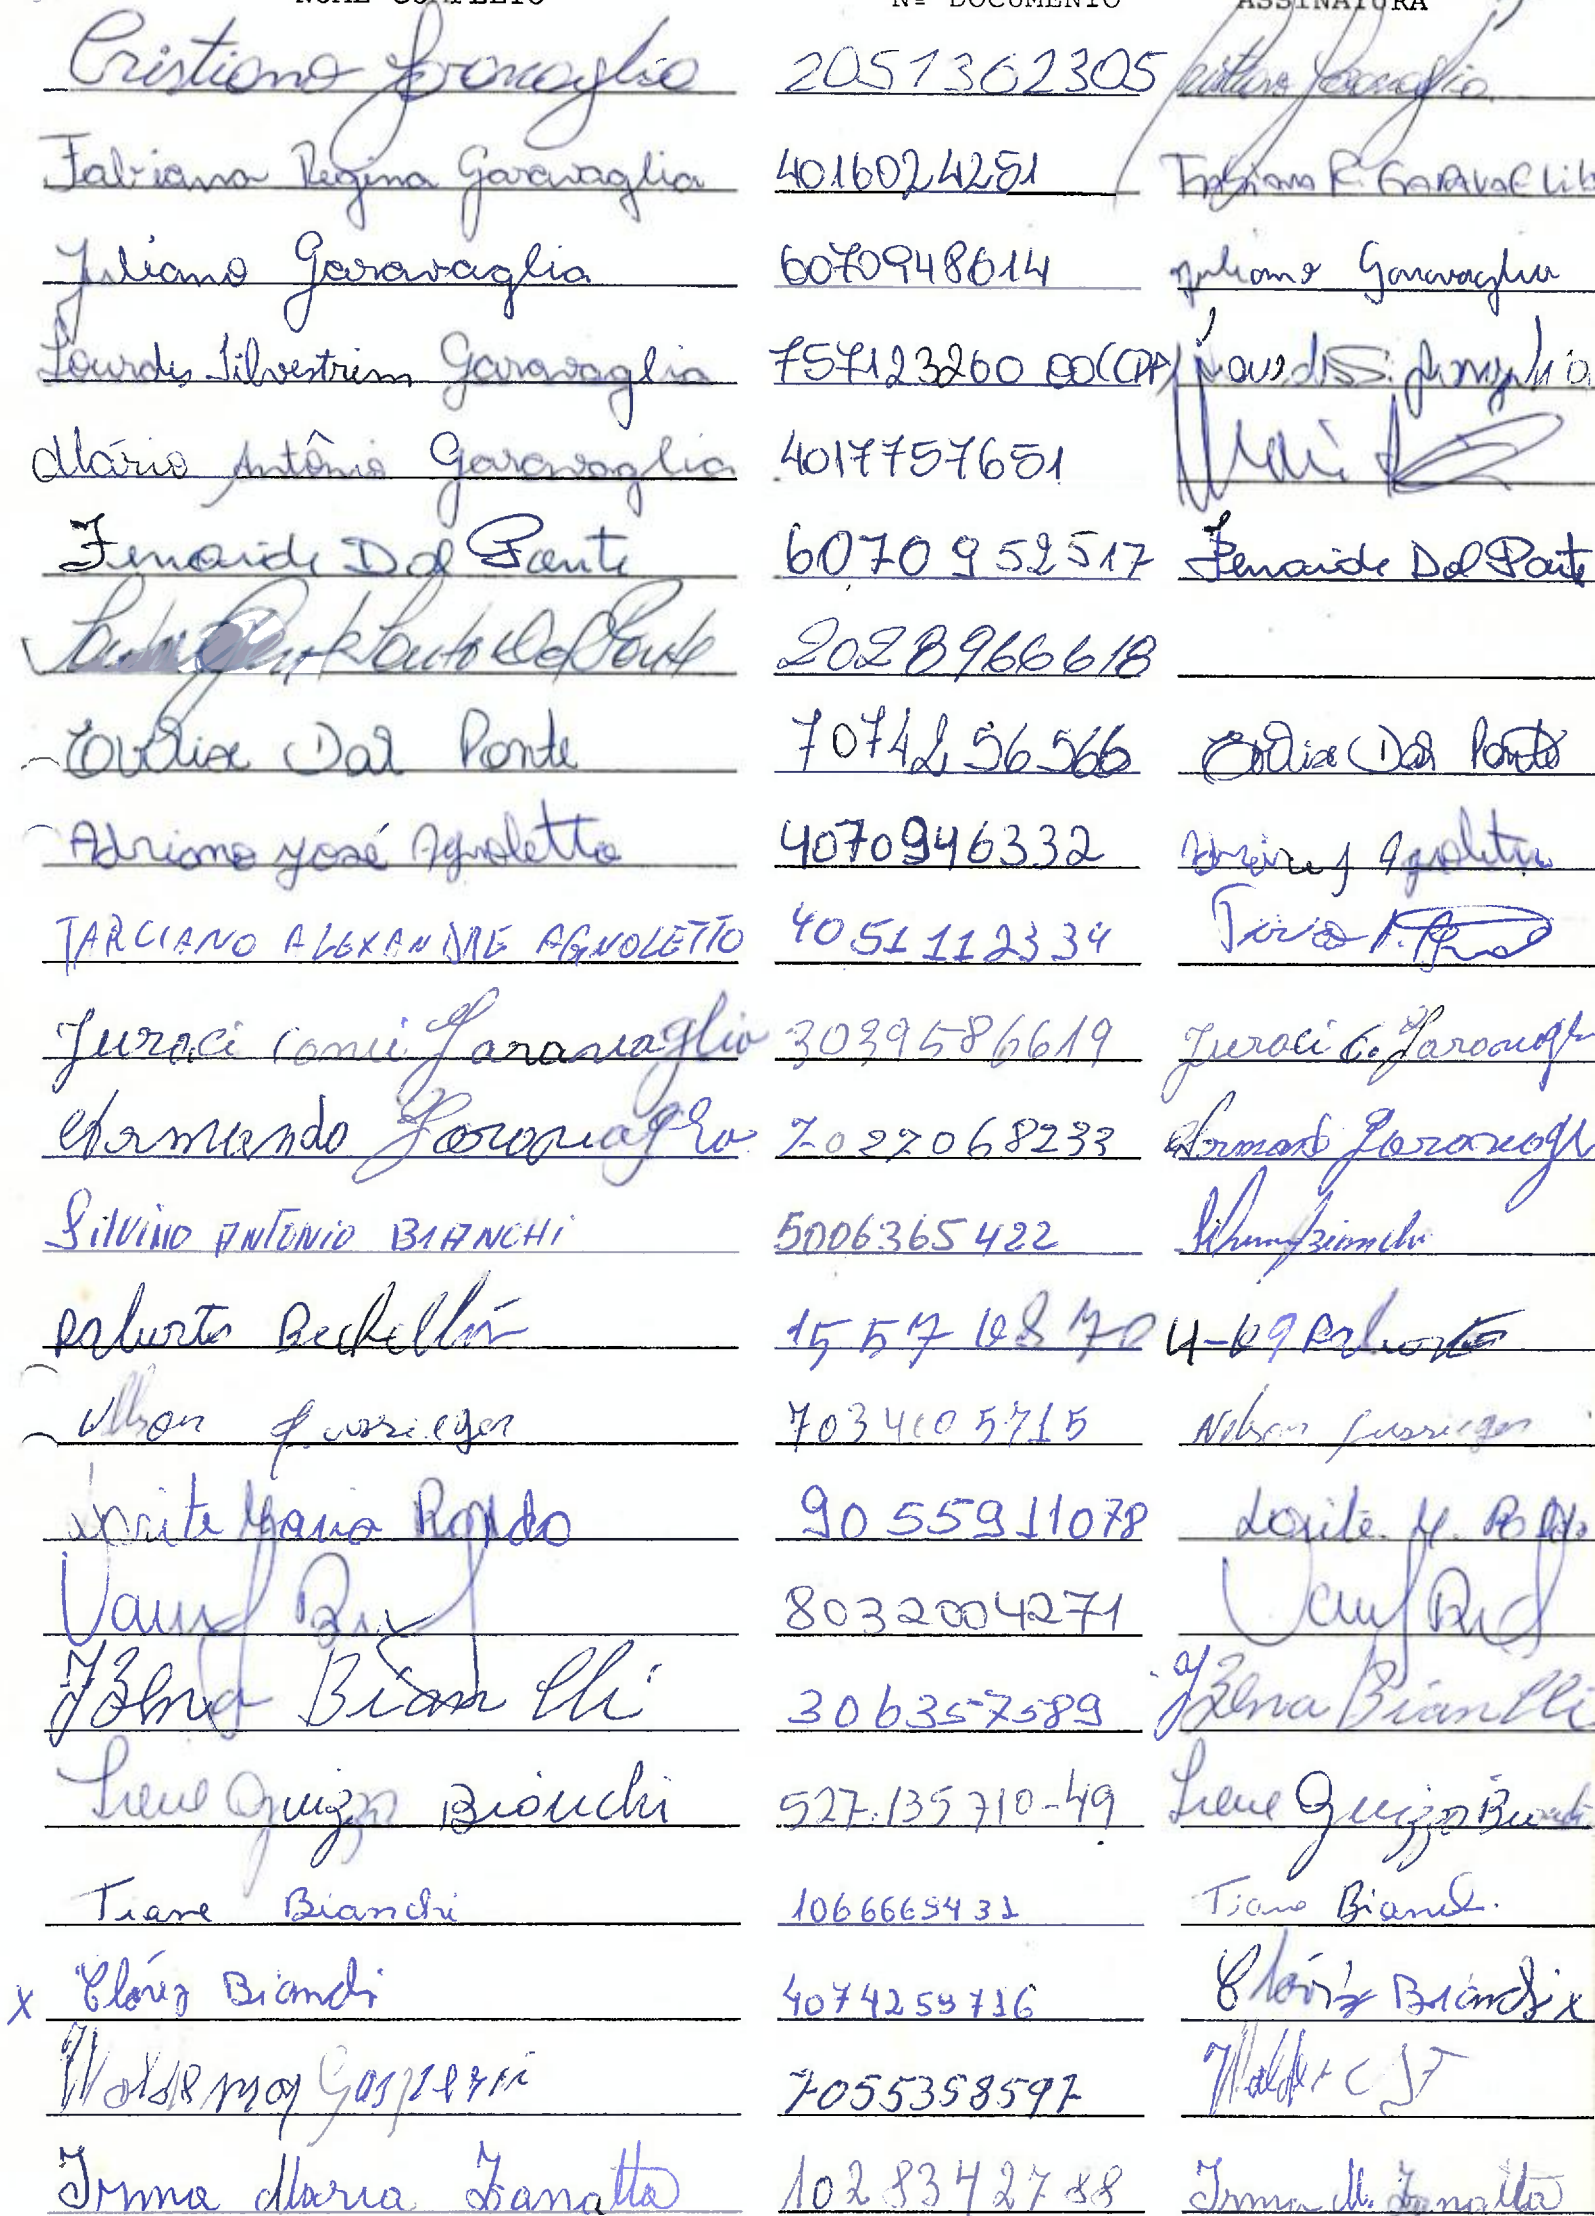 NOME COMPLETO Nº DOCUMENTO ASSINATURA
Cristiano Garavaglia 2051362305 Cristiano Garavaglia
Fabiana Regina Garavaglia 4016024251 Fabiana R. GARAVAGLIA
Juliano Garavaglia 6070948614 Juliano Garavaglia
Lourdes Silvestrim Garavaglia 75712326000(CPF) Lourdes S. Garavaglia
Mário Antônio Garavaglia 4017757651
Zenaide Dal Ponte 6070952517 Zenaide Dal Ponte
Santo Dal Ponte 2028966618
Dal Ponte 7074256566 Dal Ponte
Adriano José Agnoletto 4070946332 Agnoletto
TARCIANO ALEXANDRE AGNOLETTO 4051112334
Juraci Garavaglia 3039586619 Juraci C. Garavagl
Armando Garavaglia 7027068233 Armando Garavagl
SILVINO ANTONIO BIANCHI 5006365422 Bianchi
Roberto 4-
Nilson 7034105715 Nilson
Lorite Maria 9055911078 Lorite M.
8032004271
Izena Bianchi 306357589 Izena Bianchi
Irene Guizzo Bianchi 527.135710-49 Irene Guizzo Bianchi
Tiane Bianchi 1066669431 Tiane Bianch.
x Clóvis Bianchi 4074259716 Clóvis Bianchi x
Waldemar Gasperin 7055358597
Irma Maria Zanatta 1028342788 Irma M. Zanatta